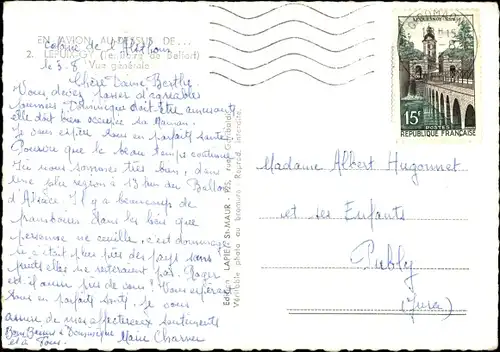 EN AVION AU-DESSUS DE...
2. LEPUIX-GY (Te. Boire de Belfort)
Vue générale
Colonie de l'Alsthom
le 3.8
Chère Dame Berthe
Vous devez passer d'agréables
journées. Dominique doit être amusant,
elle doit bien occuper sa Maman.
Je vous espère tous en parfaite santé.
Pourvu que le beau temps continue
Ici nous sommes très bien, dans
une jolie région à 13 km du Ballon
d'Alsace. Il y a beaucoup de
framboises dans les bois que
personne ne cueille, c'est dommage
si c'était plus près des pays sans
doute elles ne resteraient pas. Roger
est-il aussi près de vous ? Vous espérant
tous en parfaite santé. Je vous
assure de mes affectueux sentiments
Bons Baisers à Dominique
et à Tous.
Marie Charnier
Edition LAPIE, St-MAUR - 195, rue Garibaldi
Véritable photo au bromure - Reprod. interdite.
15F
POSTES
REPUBLIQUE FRANÇAISE
Madame Albert Hugonnet
et ses Enfants
Publy
(Jura)